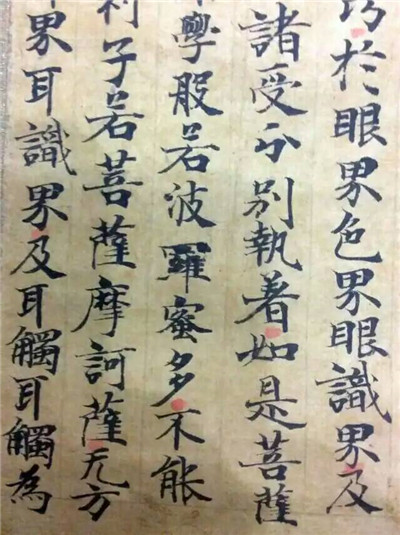 巧於眼界色界眼識界及
諸受分別執着如是菩薩
學般若波羅蜜多不能
利子若菩薩摩訶薩无方
界耳識界及耳觸耳觸為